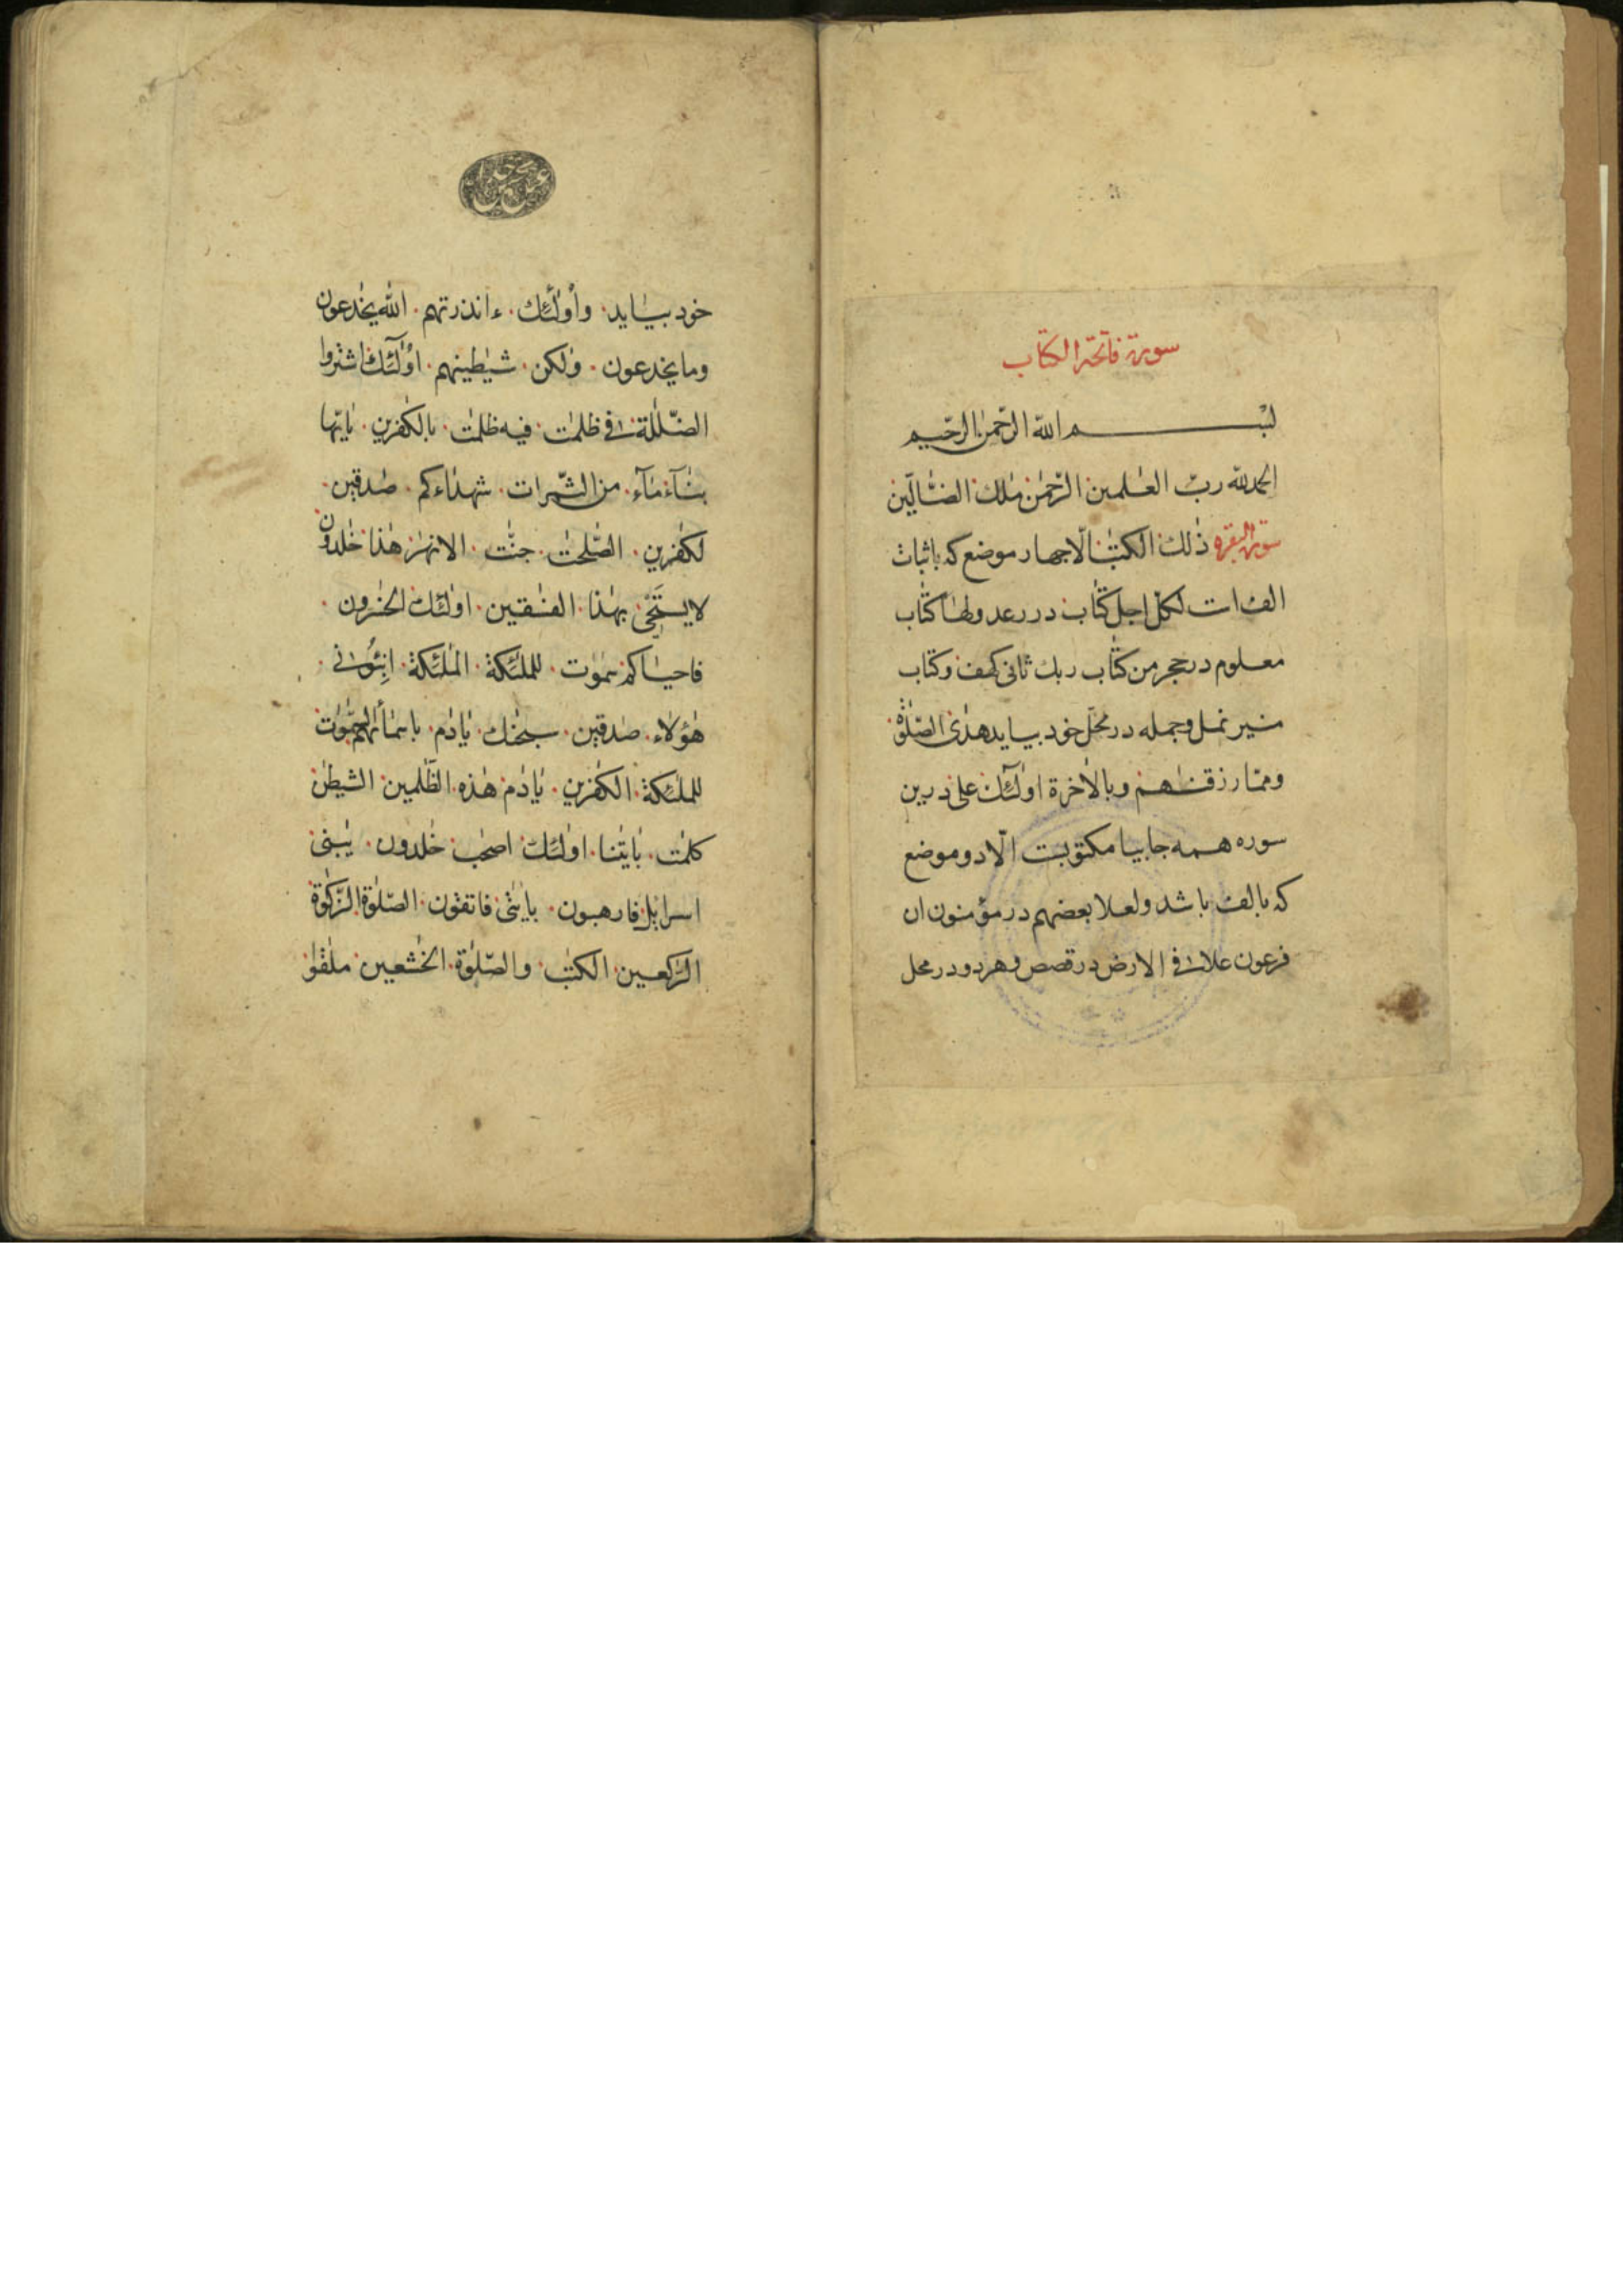 سورة فاتحة الكتاب
بسم الله الرّحمٰن الرّحيم
الحمدلله ربّ العٰلمين الرّحمٰن مٰلك الضّٰالّين
سورة البقره ذٰلك الكتٰب الّا چهار موضع كه باثبات
الف است لكلّ اجل كتٰاب در رعد ولهٰا كتٰاب
معلوم در حجر من كتٰاب ربك ثانى كهف وكتٰاب
منير نمل وجمله در محلّ خود بيايد هدٰى الصّلٰوة
وممّا رزقنٰهم وبالأخرة اولٰٓئك علٰى درين
سوره همه جا بيا مكتوبست الّا دو موضع
كه بالف باشد ولعلا بعضهم در مؤمنون ان
فرعون علا فى الارض در قصص وهردو در محل
خود بيايد وأولٰٓئك ءانذرتهم الله يخٰدعون
وما يخدعون ولٰكن شيٰطينهم اولٰٓئك اشتروا
الضّلٰلة فى ظلمٰت فيه ظلمٰت بالكٰفرين يٰايّها
بنٰآء مٰآء من الثّمرات شهدٰاءكم صٰدقين
لكٰفرين الصّٰلحٰت جنّٰت الانهٰر هٰذا خٰلدون
لا يستَحْىٖ بهٰذا الفٰسقين اولٰئك الخٰسرون
فاحيٰاكم سمٰوٰت للملٰئكة الملٰئكة انبِئُونى
هٰؤلاء صٰدقين سبحٰنك يٰادٰم باسمٰائهم السّمٰوٰت
للملٰئكة الكٰفرين يٰادٰم هٰذه الظّٰلمين الشيطٰن
كلمٰت بٰايٰتنا اولٰئك اصحٰب خٰلدون يٰبنى
اسرايل فارهبون بايٰتى فاتقون الصّلٰوة الزّكٰوة
الرّٰكعين الكتٰب والصّلٰوة الخٰشعين ملٰقوا